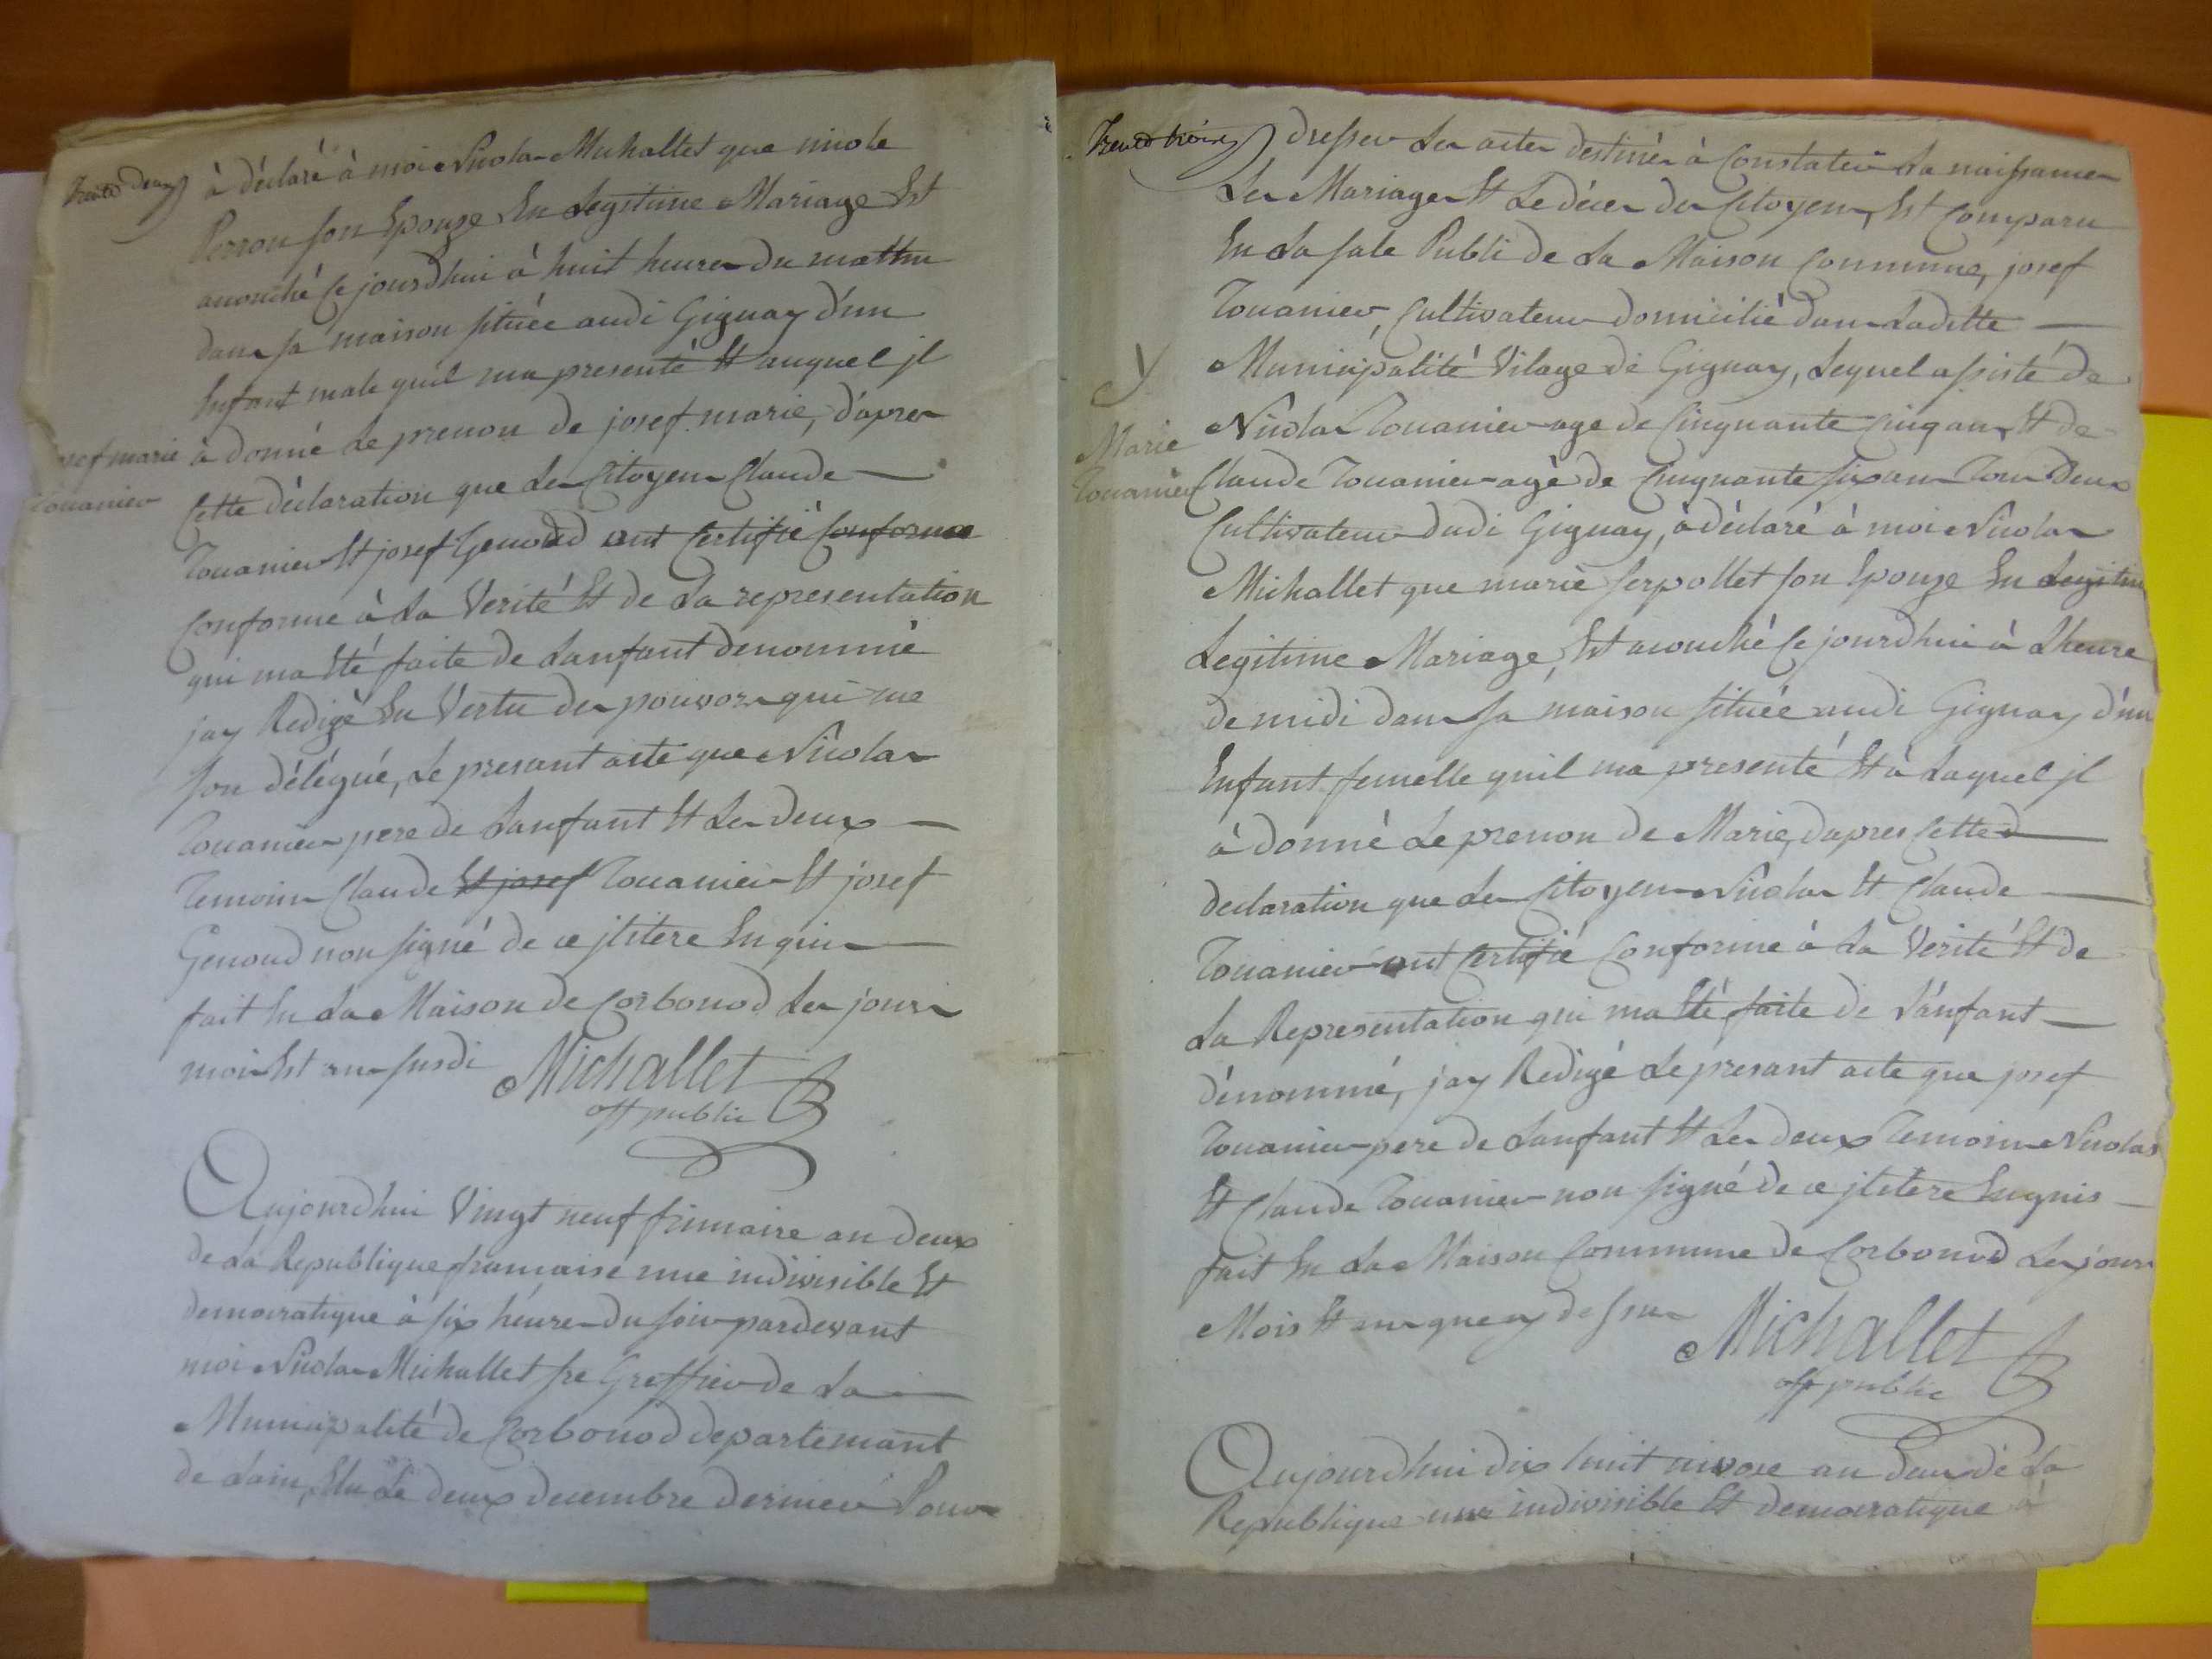 trente deux
à déclaré à moi Nicolas Michallet que nicole
Perron son Epouze En Legitime Mariage Est
acouché Ce jourdhui à huit heures du mattin
dans sa maison située audi Gignay d'un
Enfant male quil ma presenté Et auquel jl
à donné Le prenon de josef marie, d'apres
josef marie
Touanier
Cette déclaration que Les Citoyens Claude
Touanier Et josef Genoud ont Certifié Conforme
Conforme à La Verité Et de La representation
qui ma Eté faite de Lanfant denommé
jay Redigé En Vertu des pouvoirs qui me
son délégué, Le presant acte que Nicolas
Touanier pere de Lanfant Et Les deux
Temoins Claude Et josef Touanier Et josef
Genoud non signé de ce jlitere Enquis
fait En La Maison de Corbonod Les jours
mois Et an susdi
Michallet
off public
Aujourdhui Vingt neuf frimaire an deux
de La Republique francaise une indivisible Et
democratique à six heures du soir pardevant
moi Nicolas Michallet sre Greffier de La
Municipalité de Corbonod departemant
de Lain, Elu Le deux decembre dernier Pour
trente trois
dresser Les actes destinés à Constater La naissances
Les Mariages Et Le déces des Citoyens, Est Comparu
En La sale Publi de La Maison Commune, josef
Touanier, Cultivateur domicilié dans Ladette
Municipalité Vilage de Gignay, Lequel assisté de
Nicolas Touanier age de Cinquante Cinq ans, Et de
Marie
Touanier
Claude Touanier agé de Cinquante six ans Tous Deux
Cultivateur dudi Gignay, à déclaré à moi Nicolas
Michallet que marie serpollet son Epouze En Legitim
Legitime Mariage, Est acouché Ce jourdhui à Lheure
de midi dans sa maison située audi Gignay d'un
Enfant femelle quil ma presenté Et à Laquel jl
à donné Le prenon de Marie, dapres Cette d
declaration que Les Citoyens Nicolas Et Claude
Touanier ont Certifié Conforme à La Verité Et de
La Representation qui ma Eté faite de L'anfant
dénommé, jay Redigé Le presant acte que josef
Touanier pere de Lanfant Et Les deux Temoins Nicolas
Et Claude Touanier non signé de ce jlitere Enquis
fait En La Maison Commune de Corbonod Les jours
Mois Et an que cy dessus
Michallet
off public
Aujourdhui dix huit nivose an deux de La
Republique une indivisible Et democratique à